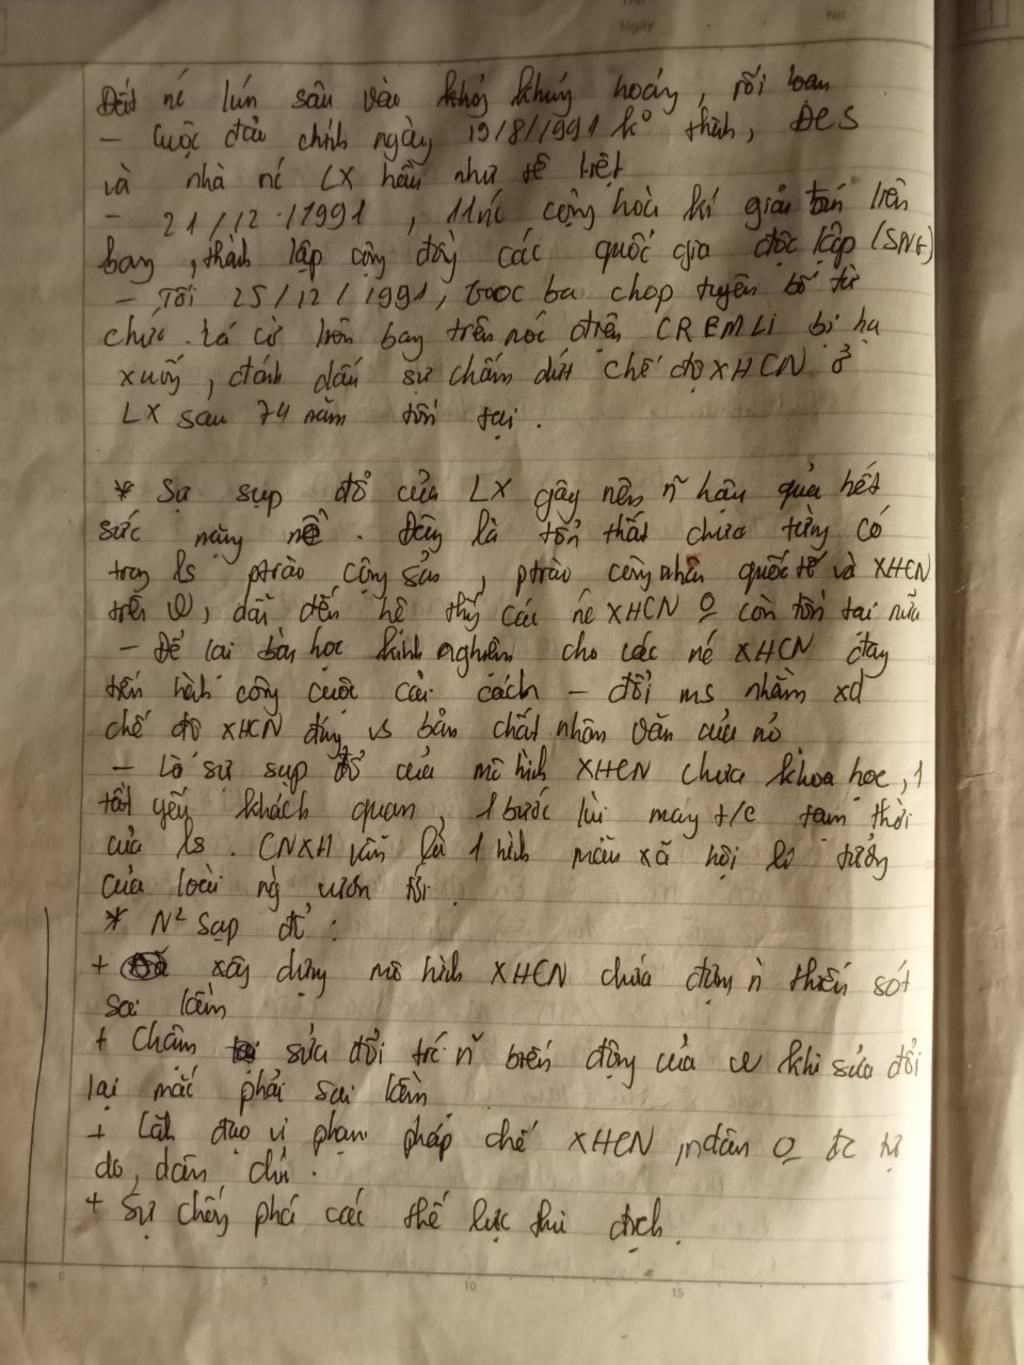 Đất nc lún sâu vào khủng hoảng, rối loạn
– Cuộc đảo chính ngày 19/8/1991 ko thành, ĐCS
và nhà nc LX hầu như tê liệt
– 21/12/1991, 11 nc cộng hoà kí giải tán liên
bang, thành lập cộng đồng các quốc gia độc lập (SNG)
– Tối 25/12/1991, Gooc ba chop tuyên bố từ
chức. Lá cờ liên bang trên nóc điện CREMLI bị hạ
xuống, đánh dấu sự chấm dứt chế độ XHCN ở
LX sau 74 năm tồn tại.
* Sự sụp đổ của LX gây nên n~ hậu quả hết
sức nặng nề. Đây là tổn thất chưa từng có
trong ls ptrào cộng sản, ptrào công nhân quốc tế và XHCN
trên, dẫn đến hệ thống các nc XHCN o còn tồn tại nữa
– Để lại bài học kinh nghiệm cho các nc XHCN đang
tiến hành công cuộc cải cách – đổi ms nhằm xd
chế độ XHCN đúng vs bản chất nhân văn của nó
– Là sự sụp đổ của mô hình XHCN chưa khoa học, 1
tất yếu khách quan, 1 bước lùi mang t/c tạm thời
của ls. CNXH vẫn là 1 hình mẫu xã hội lí tưởng
của loài ng vươn tới.
* N² sụp đổ:
+ xây dựng mô hình XHCN chứa đựng n` thiếu sót
sai lầm
+ Chậm sửa đổi trc n~ biến động của khi sửa đổi
lại mắc phải sai lầm
+ Lãnh đạo vi phạm pháp chế XHCN, ndân o đc tự
do, dân chủ.
+ Sự chống phá các thế lực thù địch.
0 5 10 15 20